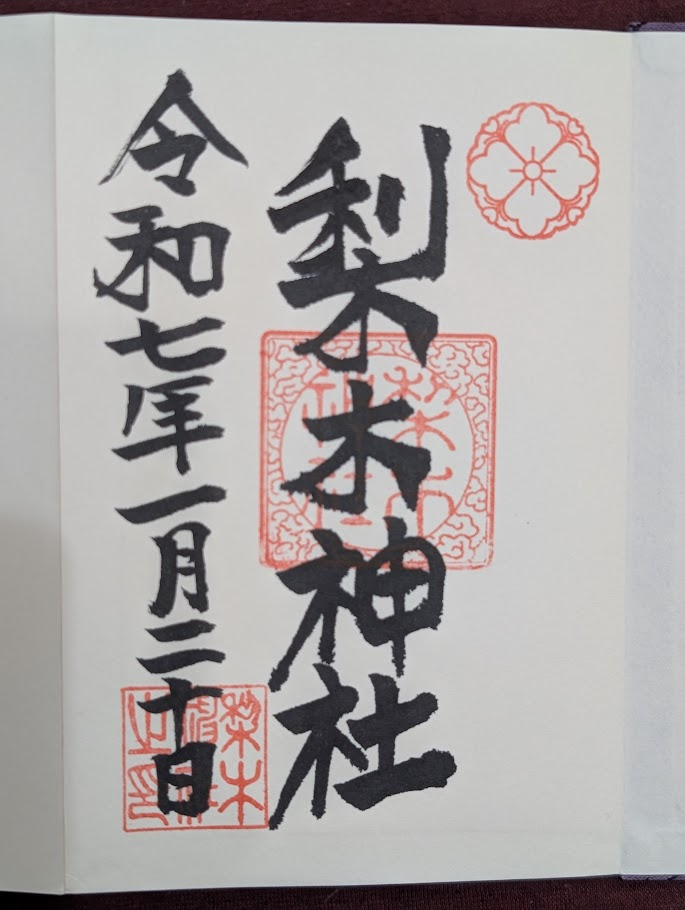 梨木神社
令和七年一月二十日